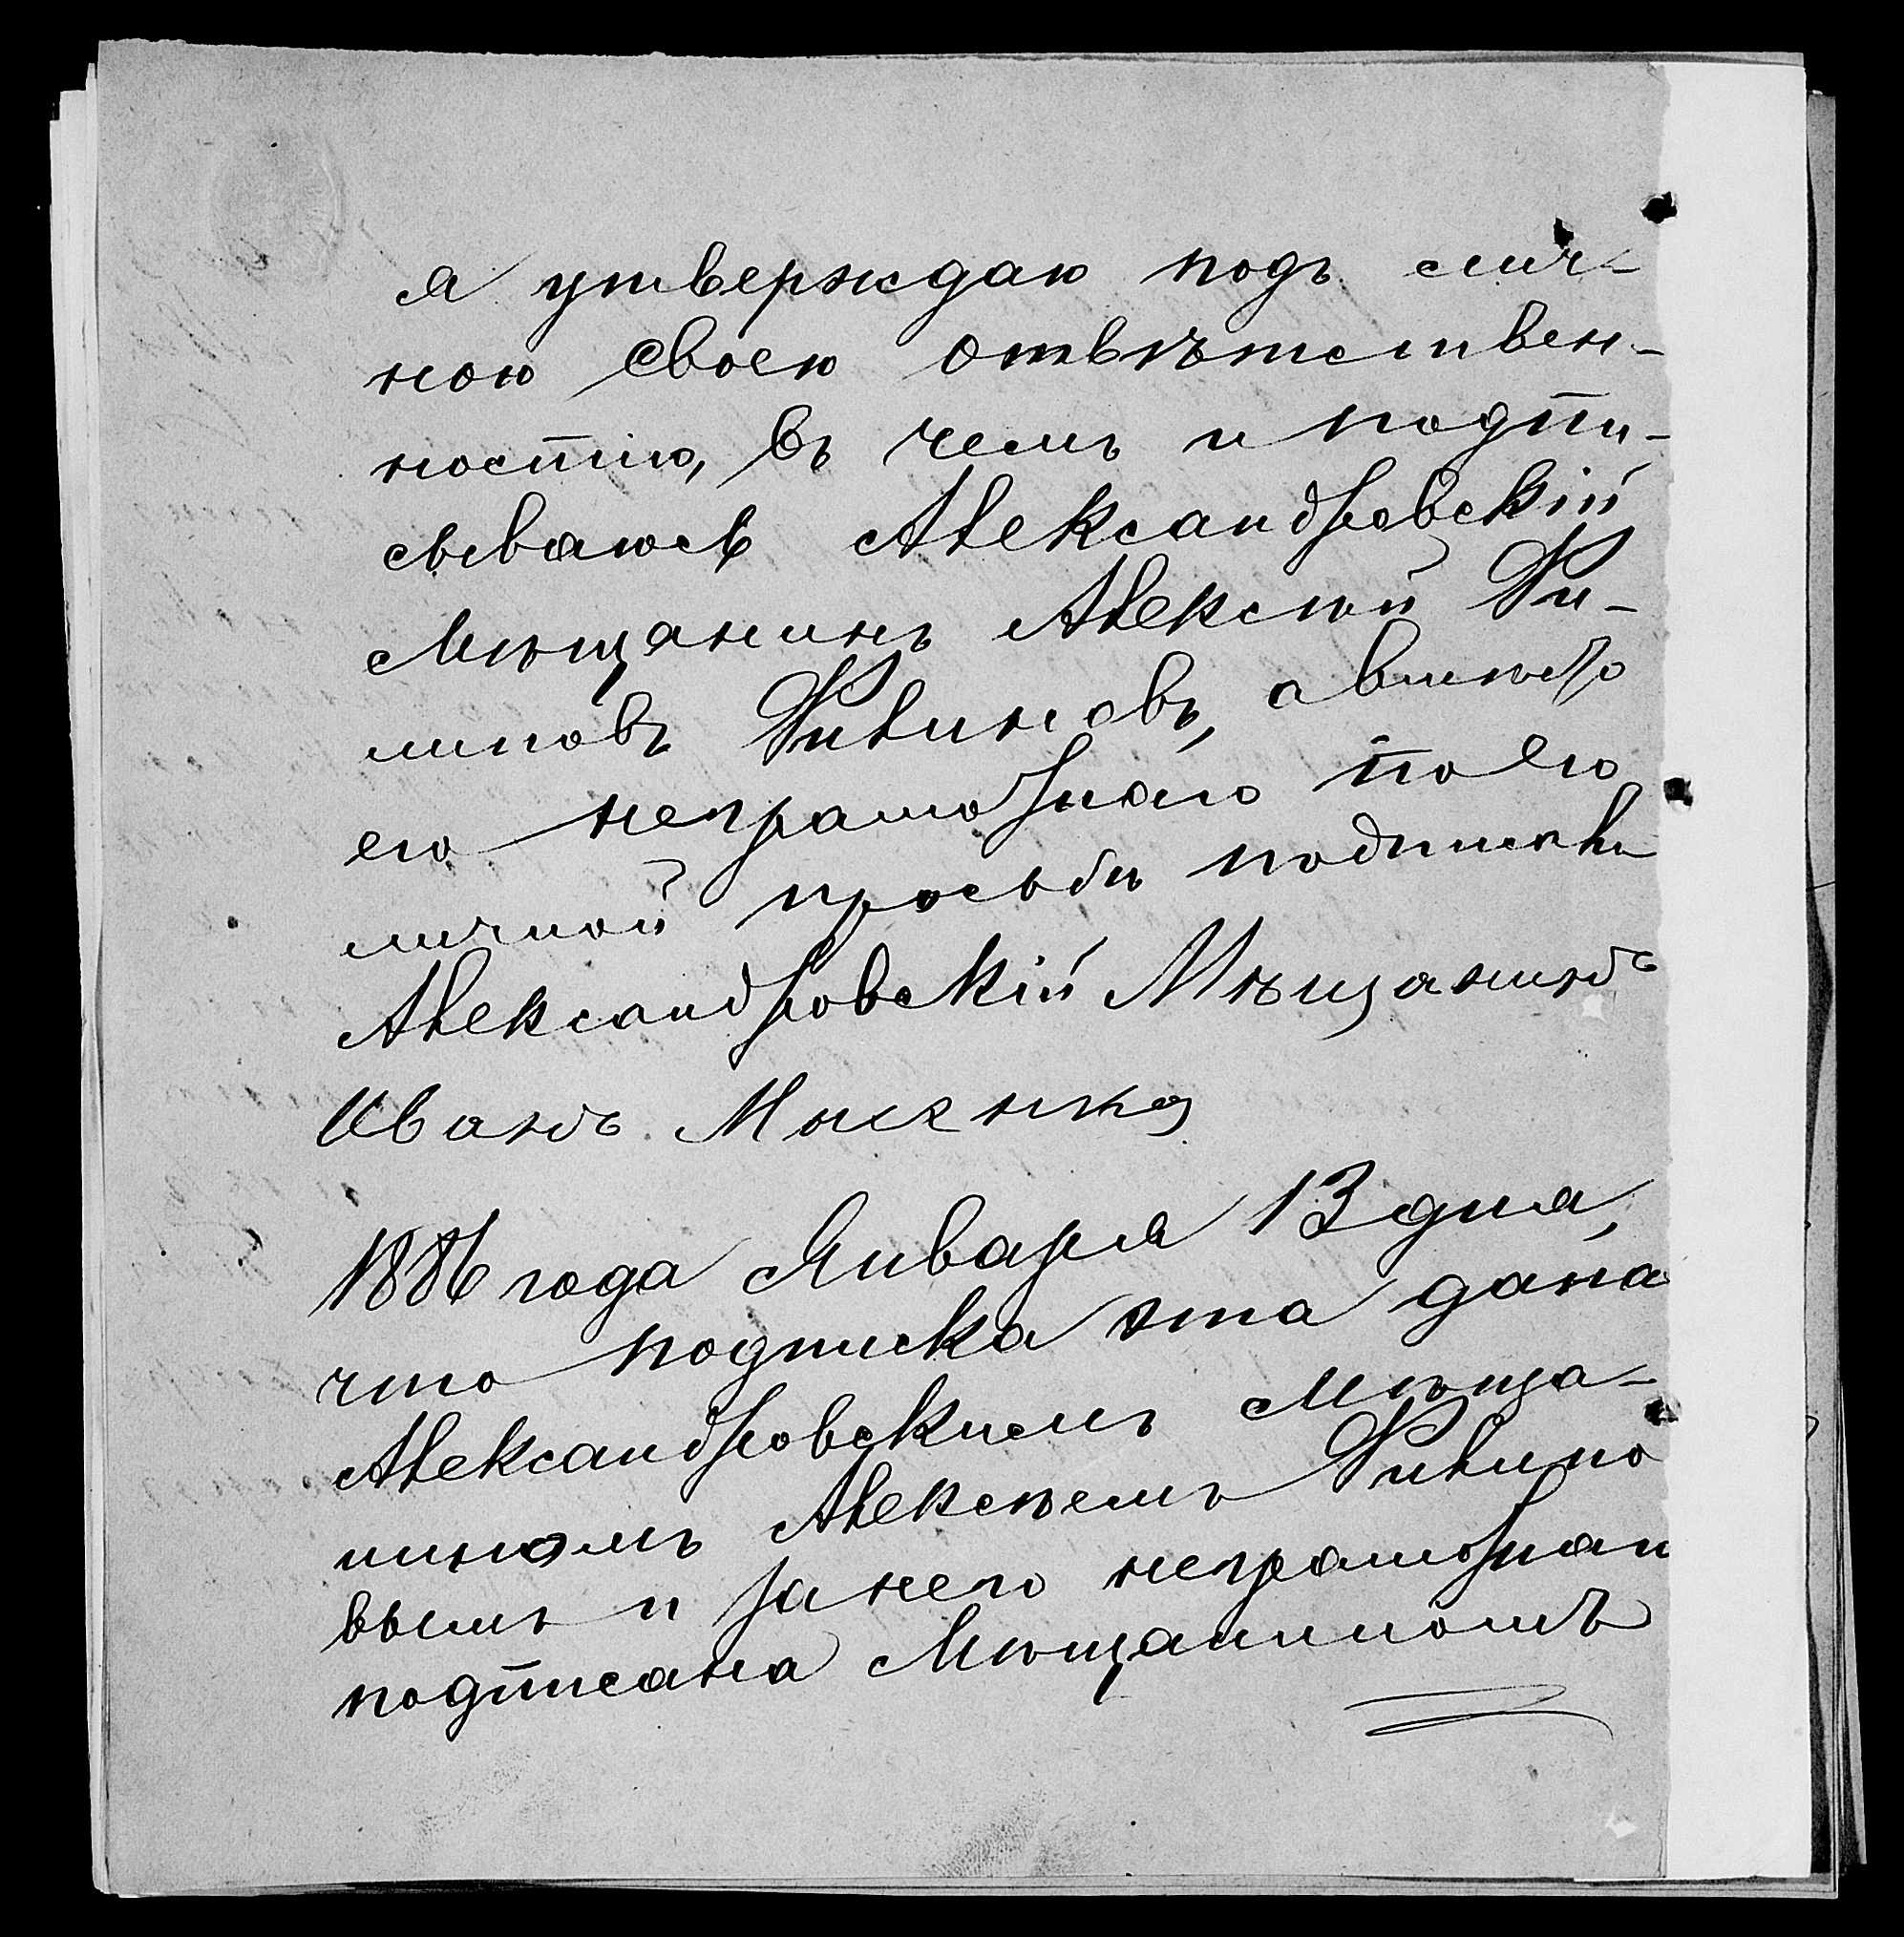 я утверждаю подъ лич-
ною своею отвѣтствен-
ностію, въ чемъ и подпи-
сываюсь Александровскій
Мѣщанинъ Алексѣй Фи-
липовъ Филиповъ, а вмѣсто
его неграмотнаго по его
личной просьбѣ подписалъ
Александровскій Мѣщанинъ
Иванъ
1886 года Января 13 дня,
что подписка эта дана
Александровскимъ Мѣща-
ниномъ Алексѣемъ Филипо
вымъ и за него неграмотнаго
подписана Мѣщаниномъ